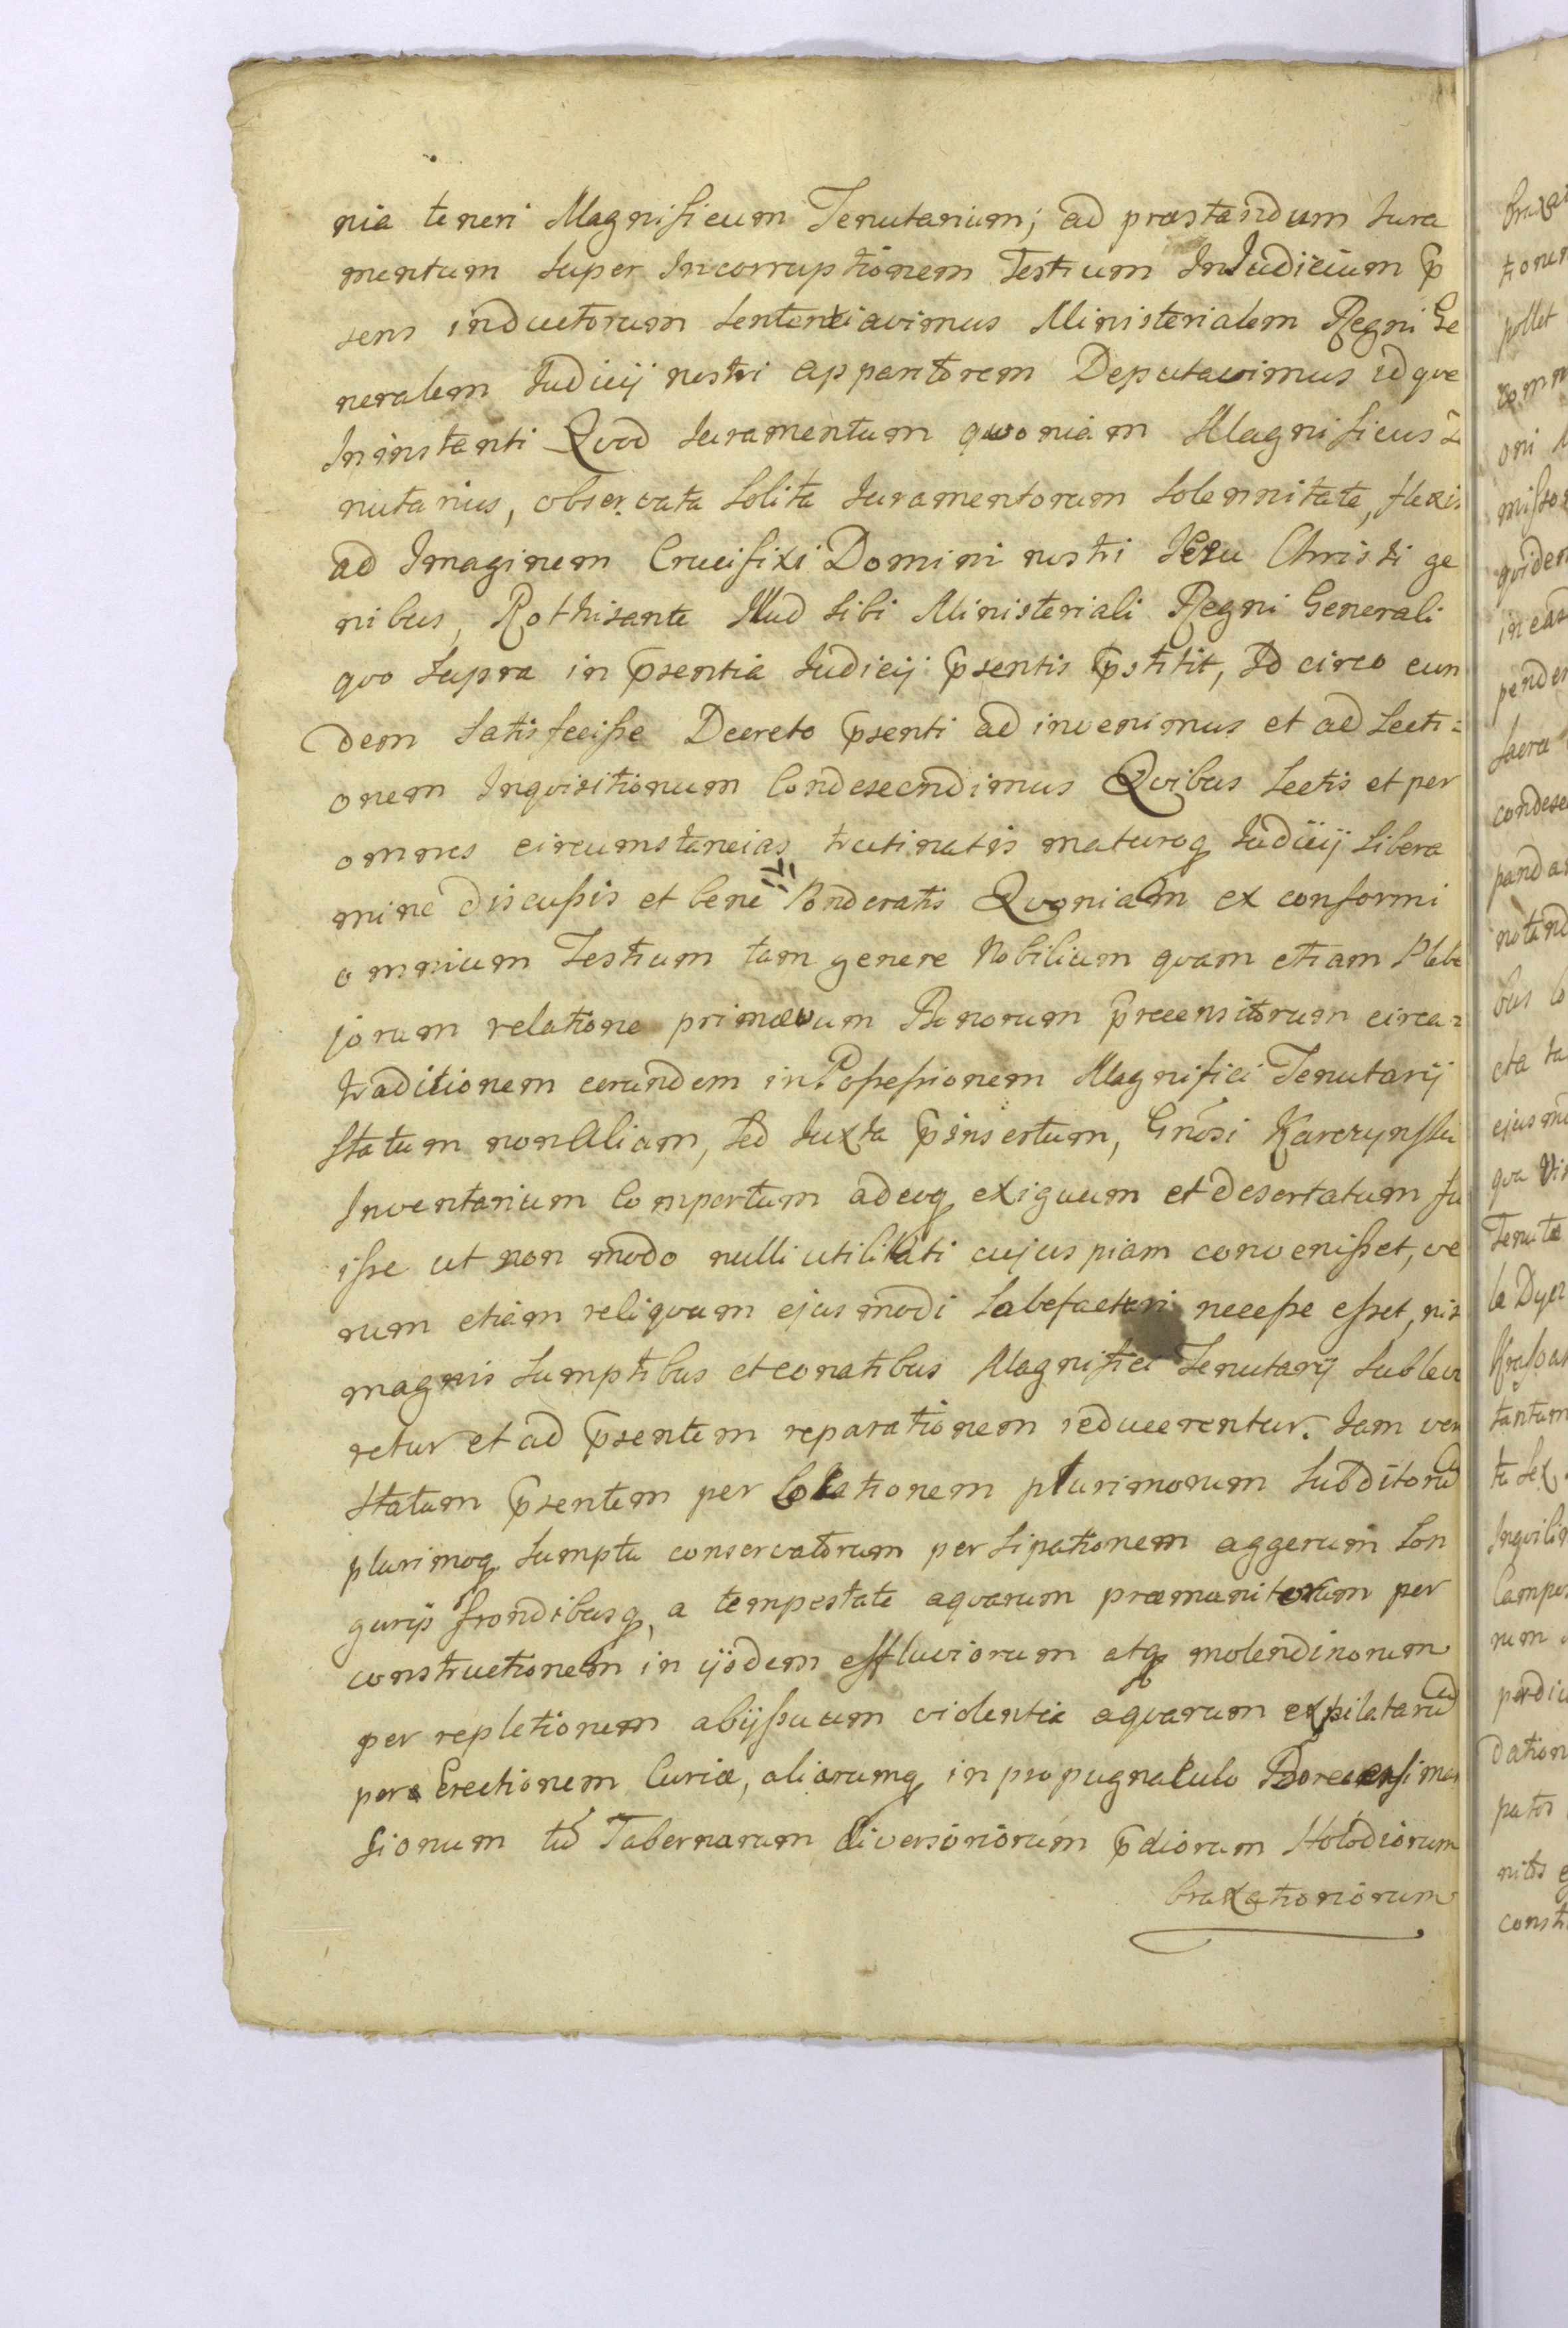 nia teneri Magnificum Tenutarium; ad præstandum Jura
mentum super Incorruptionem Testium InJudicium p̄
sens inductorum sententiavimus Ministerialem Regni Ge
neralem Judicij nostri apparitorem Deputavimus idque
Ininstanti Quod Juramentum quoniam Magnificus
nutarius, observata solita Juramentorum solennitate, flexis
ad Imaginem Crucifixi Domini nostri Jesu Christi ge
nibus, Rothisante Illud sibi Ministeriali Regni Generali
quo supra in p̄sentia Judicij p̄sentis p̄stitit, Id circo eun
dem satisfecisse Decreto p̄senti ad invenimus et ad Lecti=
onem Inquisitionum Condescendimus Quibus Lectis et per
omnes circumstancias trutinatis maturoq Judicij Libera
mine discussis et bene Ponderatis Quoniam ex conformi
omnium Testium tam genere Nobilium quam etiam Plebe
jorum relatione primævum Bonorum p̄recensitorum circa=
traditionem eorundem in Possessionem Magnifici Tenutarij
statum non Aliam, sed Juxta p̄insertum, Gnōsi Karczynski
Inventarium Compertum adeoq exiguum et desertatum fu
isse ut non modo nulli utilitati cujuspiam convenisset, ve
rum etiam reliquum ejusmodi Labefactari necesse esset, nisi
magnis sumptibus et conatibus Magnifici Tenutarij subleva
retur et ad p̄sentem reparationem reducerentur. Jam vero
statum p̄sentem per Locationem plurimorum subditorū
plurimoq sumptu conservatorum per sipationem aggerum Lon
gurijs frondibusq, a tempestate aquarum præmunitorum per
constructionem in ijsdem effluviorum atq molendinorum
per repletionem abijssuum violentia aquarum expilatarū
per Erectionem Curiæ, aliarumq in propugnaculo man
sionum tū Tabernarum diversoriorum p̄diorum Hołodiorum
braxatoriorum
braxat
pollet
quidem
sacra
ejusmo
Tenutæ
tantum